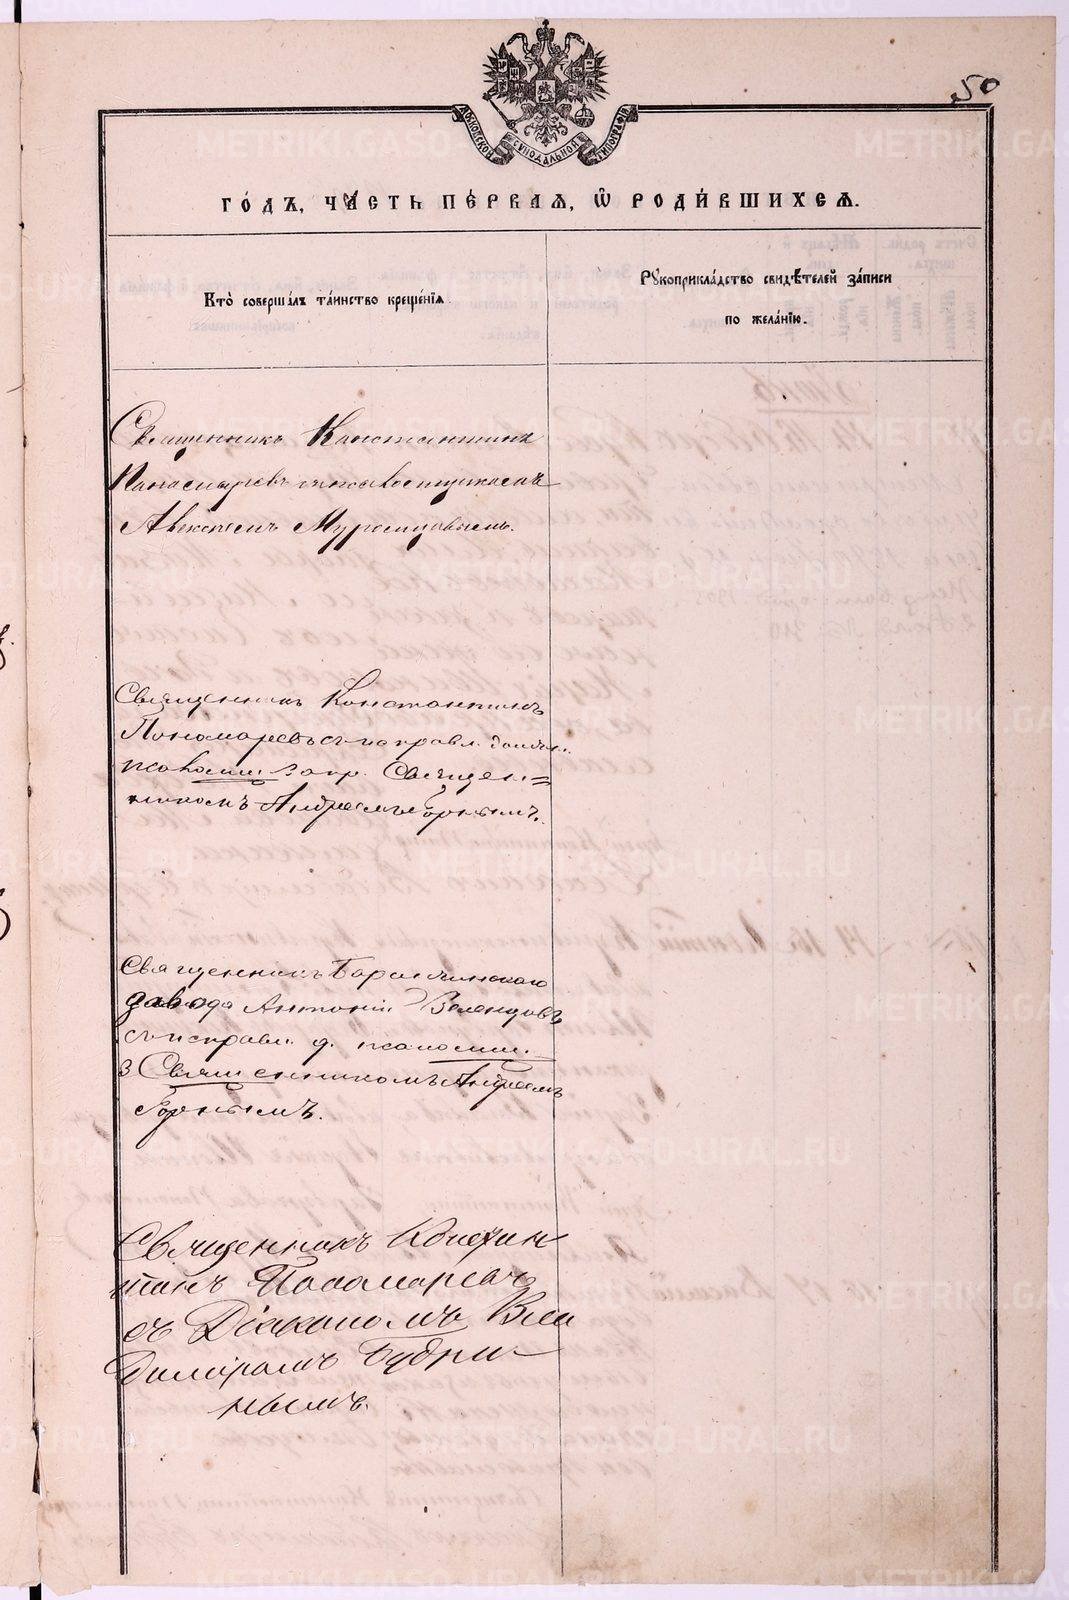 50
МОСКОВСКОЙ СѴНОДАЛЬНОЙ ТИПОГРАФІИ
ГО́ДЪ, ЧА́СТЬ ПЕ́РВАЯ, Ѽ РОДИ́ВШИХСЯ.
Кто̀ соверша́лъ та́инство креще́нїѧ.
Рꙋкоприкла́дство свидѣ́телей за́писи
по жела́нїю.
Священникъ Константинъ
Пономаревъ съ псаломщикомъ
Алексѣемъ Муромцовымъ.
Священникъ Константинъ
Пономаревъ съ исправл. должн.
псаломщ. запр. Священ=
никомъ Андреемъ Горнымъ.
Священникъ Баранчинскаго
завода Антоній Зеленцовъ
съ исправл. д. псаломщ.
з Священникомъ Андреемъ
Горнымъ.
Священникъ Констан
тинъ Пономаревъ
съ Діакономъ Вла
димiромъ Будри
нымъ.
METRIKI.GASO-URAL.RU